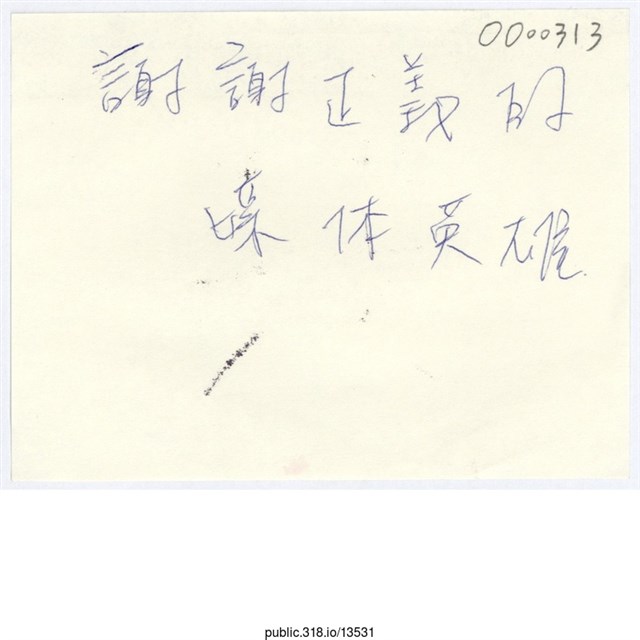 0000313
謝謝正義的
媒体英雄
public.318.io/13531